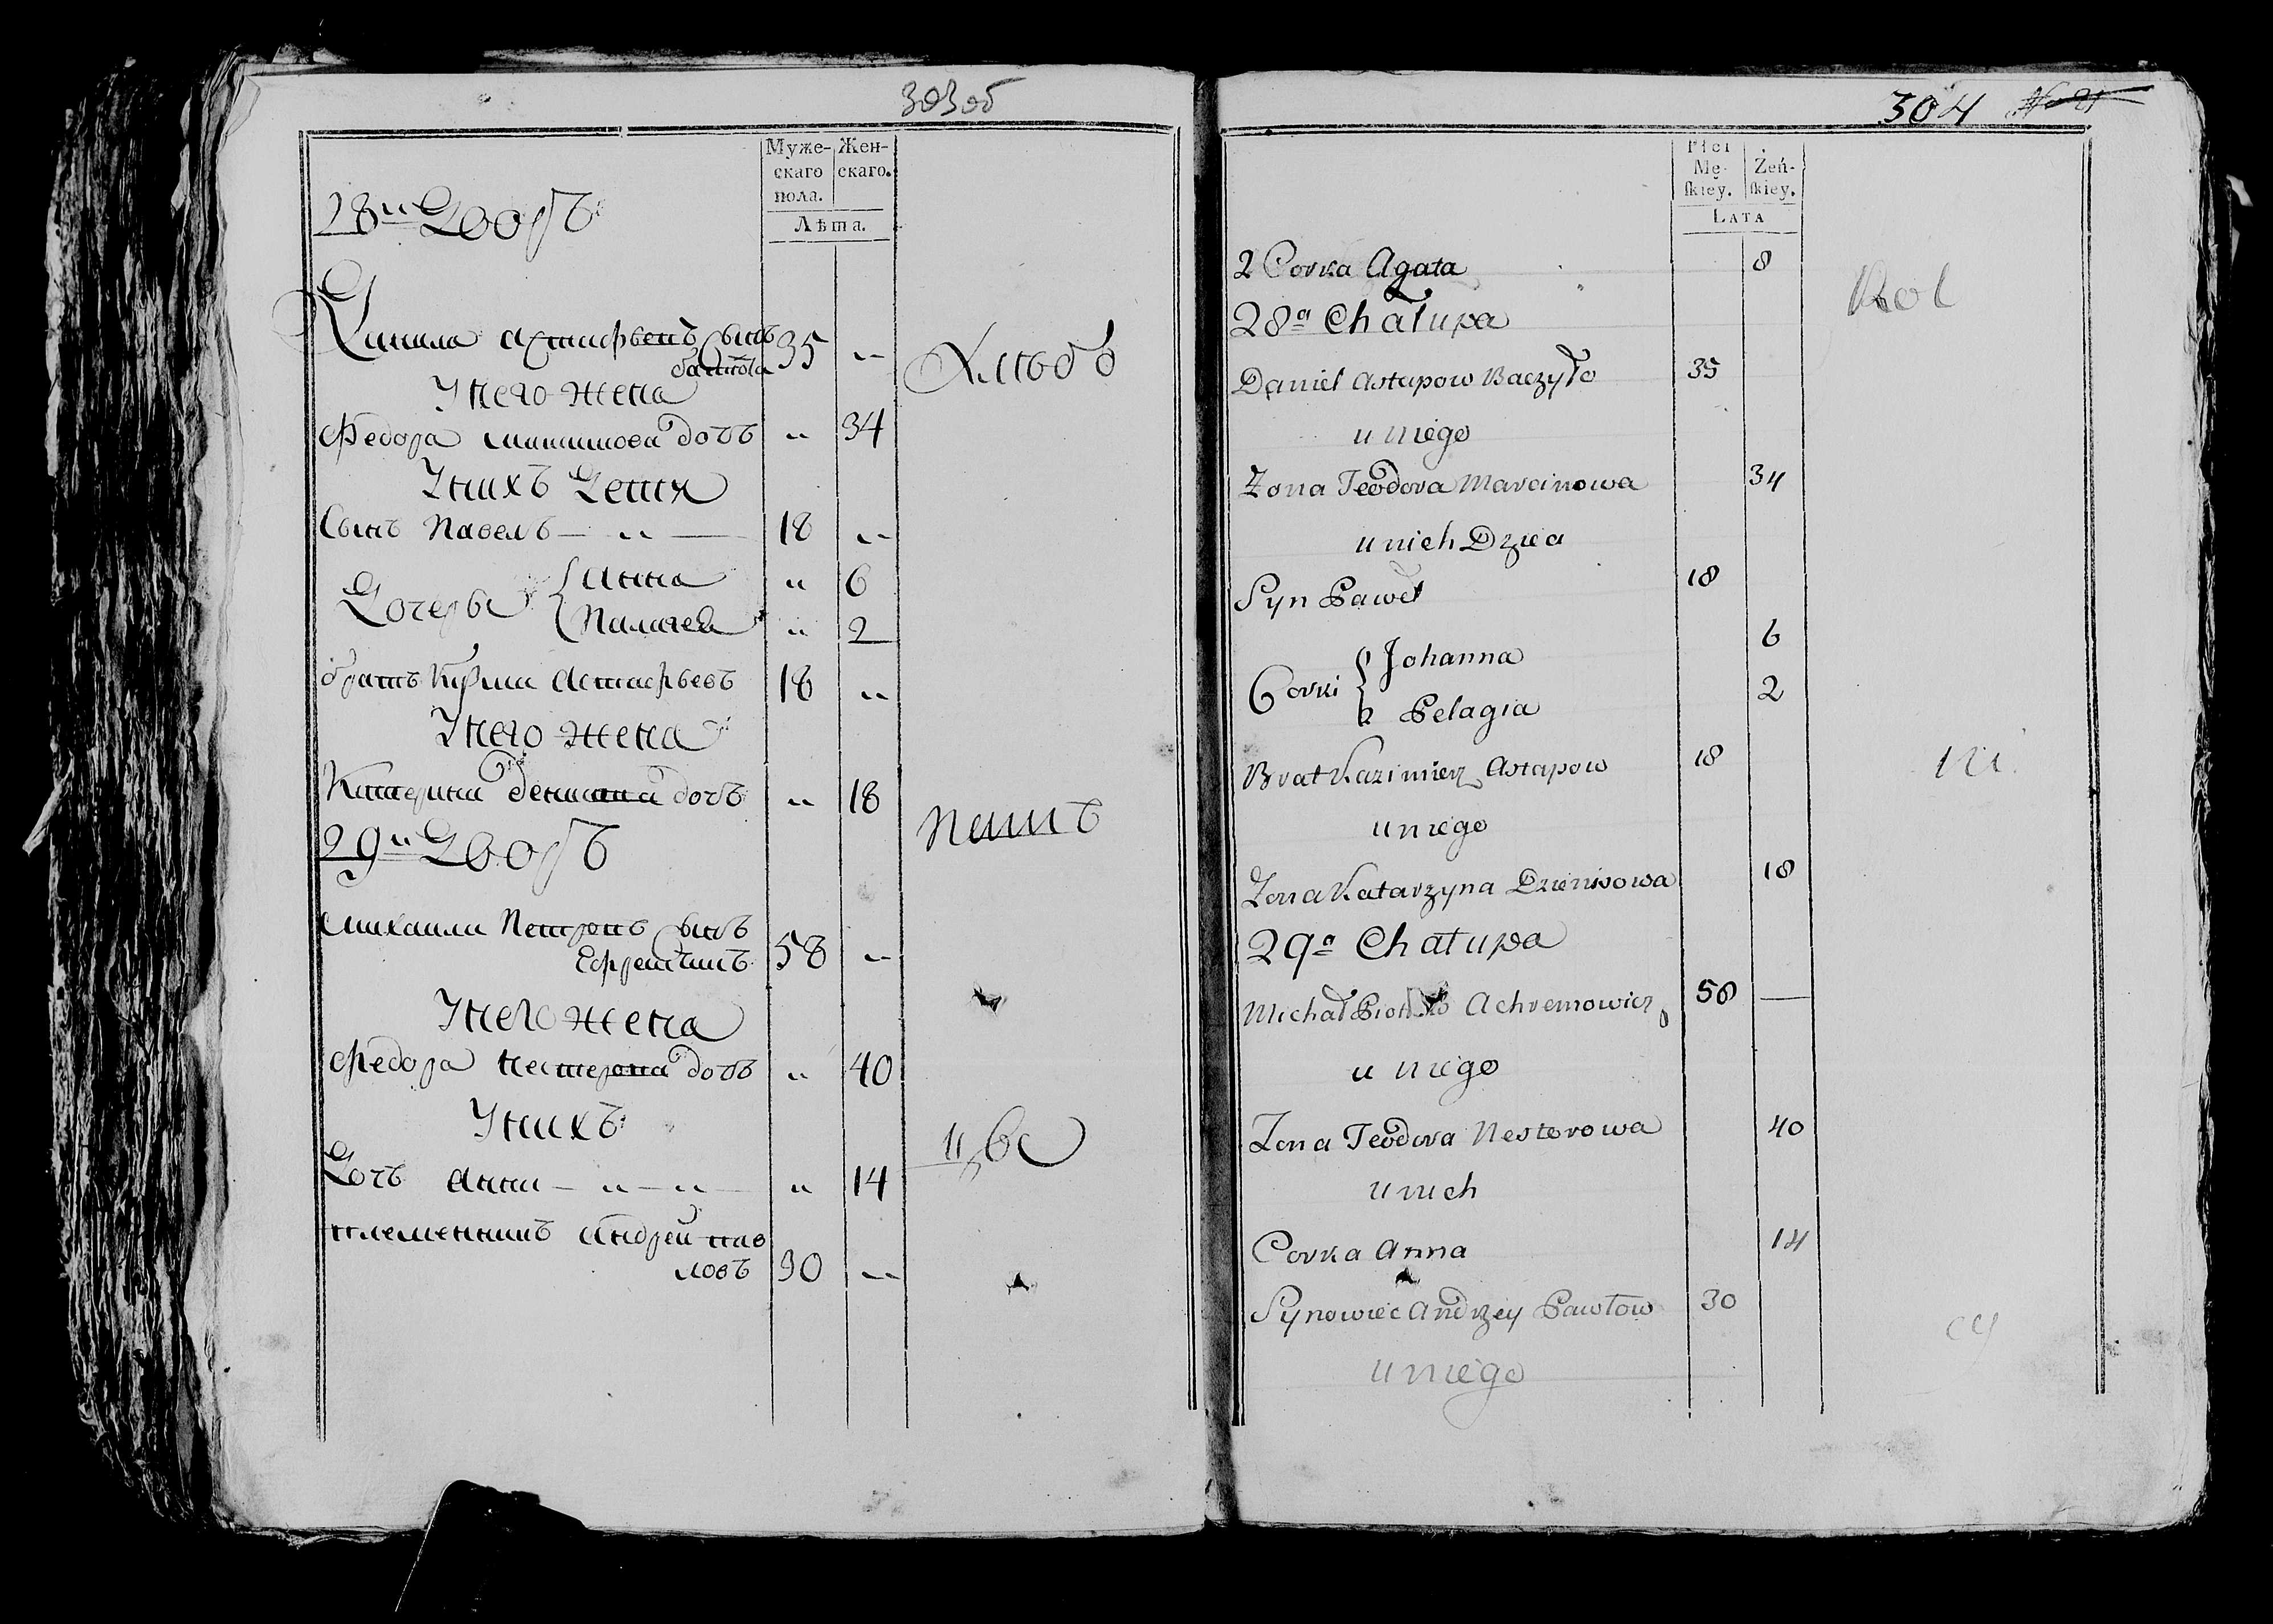 303об
Муже-
скаго
пола.
Жен-
скаго.
Лѣта.
28й Дворъ
Данила Астафьевъ сынъ 35 „
У него жена
Федора дочь „ 34
У нихъ Дети
Сынъ Павелъ — „ — 18 „
Дочерьи { Анна „ 6
Палагея „ 2
братъ Астафьевъ 18 „
У него жена
Катерина Дениса дочь „ 18
29й Дворъ
Михаила Петровъ сынъ
58 „
У него жена
Федора Нестерова дочь „ 40
У нихъ
Дочь Анна — „ — „ — „ 14
племянникъ Андрей Пав
ловъ 30 „
Хлѣбо
паш
304
Płci
Mę-
skiey.
Żeń-
skiey.
Lata
2 Corka Agata 8
28a Chałupa
Daniel Astapow Baczyło 35
u niego
Żona Teodora Marcinowa 34
u nich Dzieci
Syn Paweł 18
Corki { Johanna 6
2 Pelagia 2
Brat Kazimierz Astapow 18
u niego
Żona Katarzyna Dzienisowa 18
29a Chałupa
Michał Achremowicz 58 —
u niego
Żona Teodora Nesterowa 40
u nich
Corka Anna 14
Synowiec Andrzey Pawłow 30
u niego
Rol
ni
cy